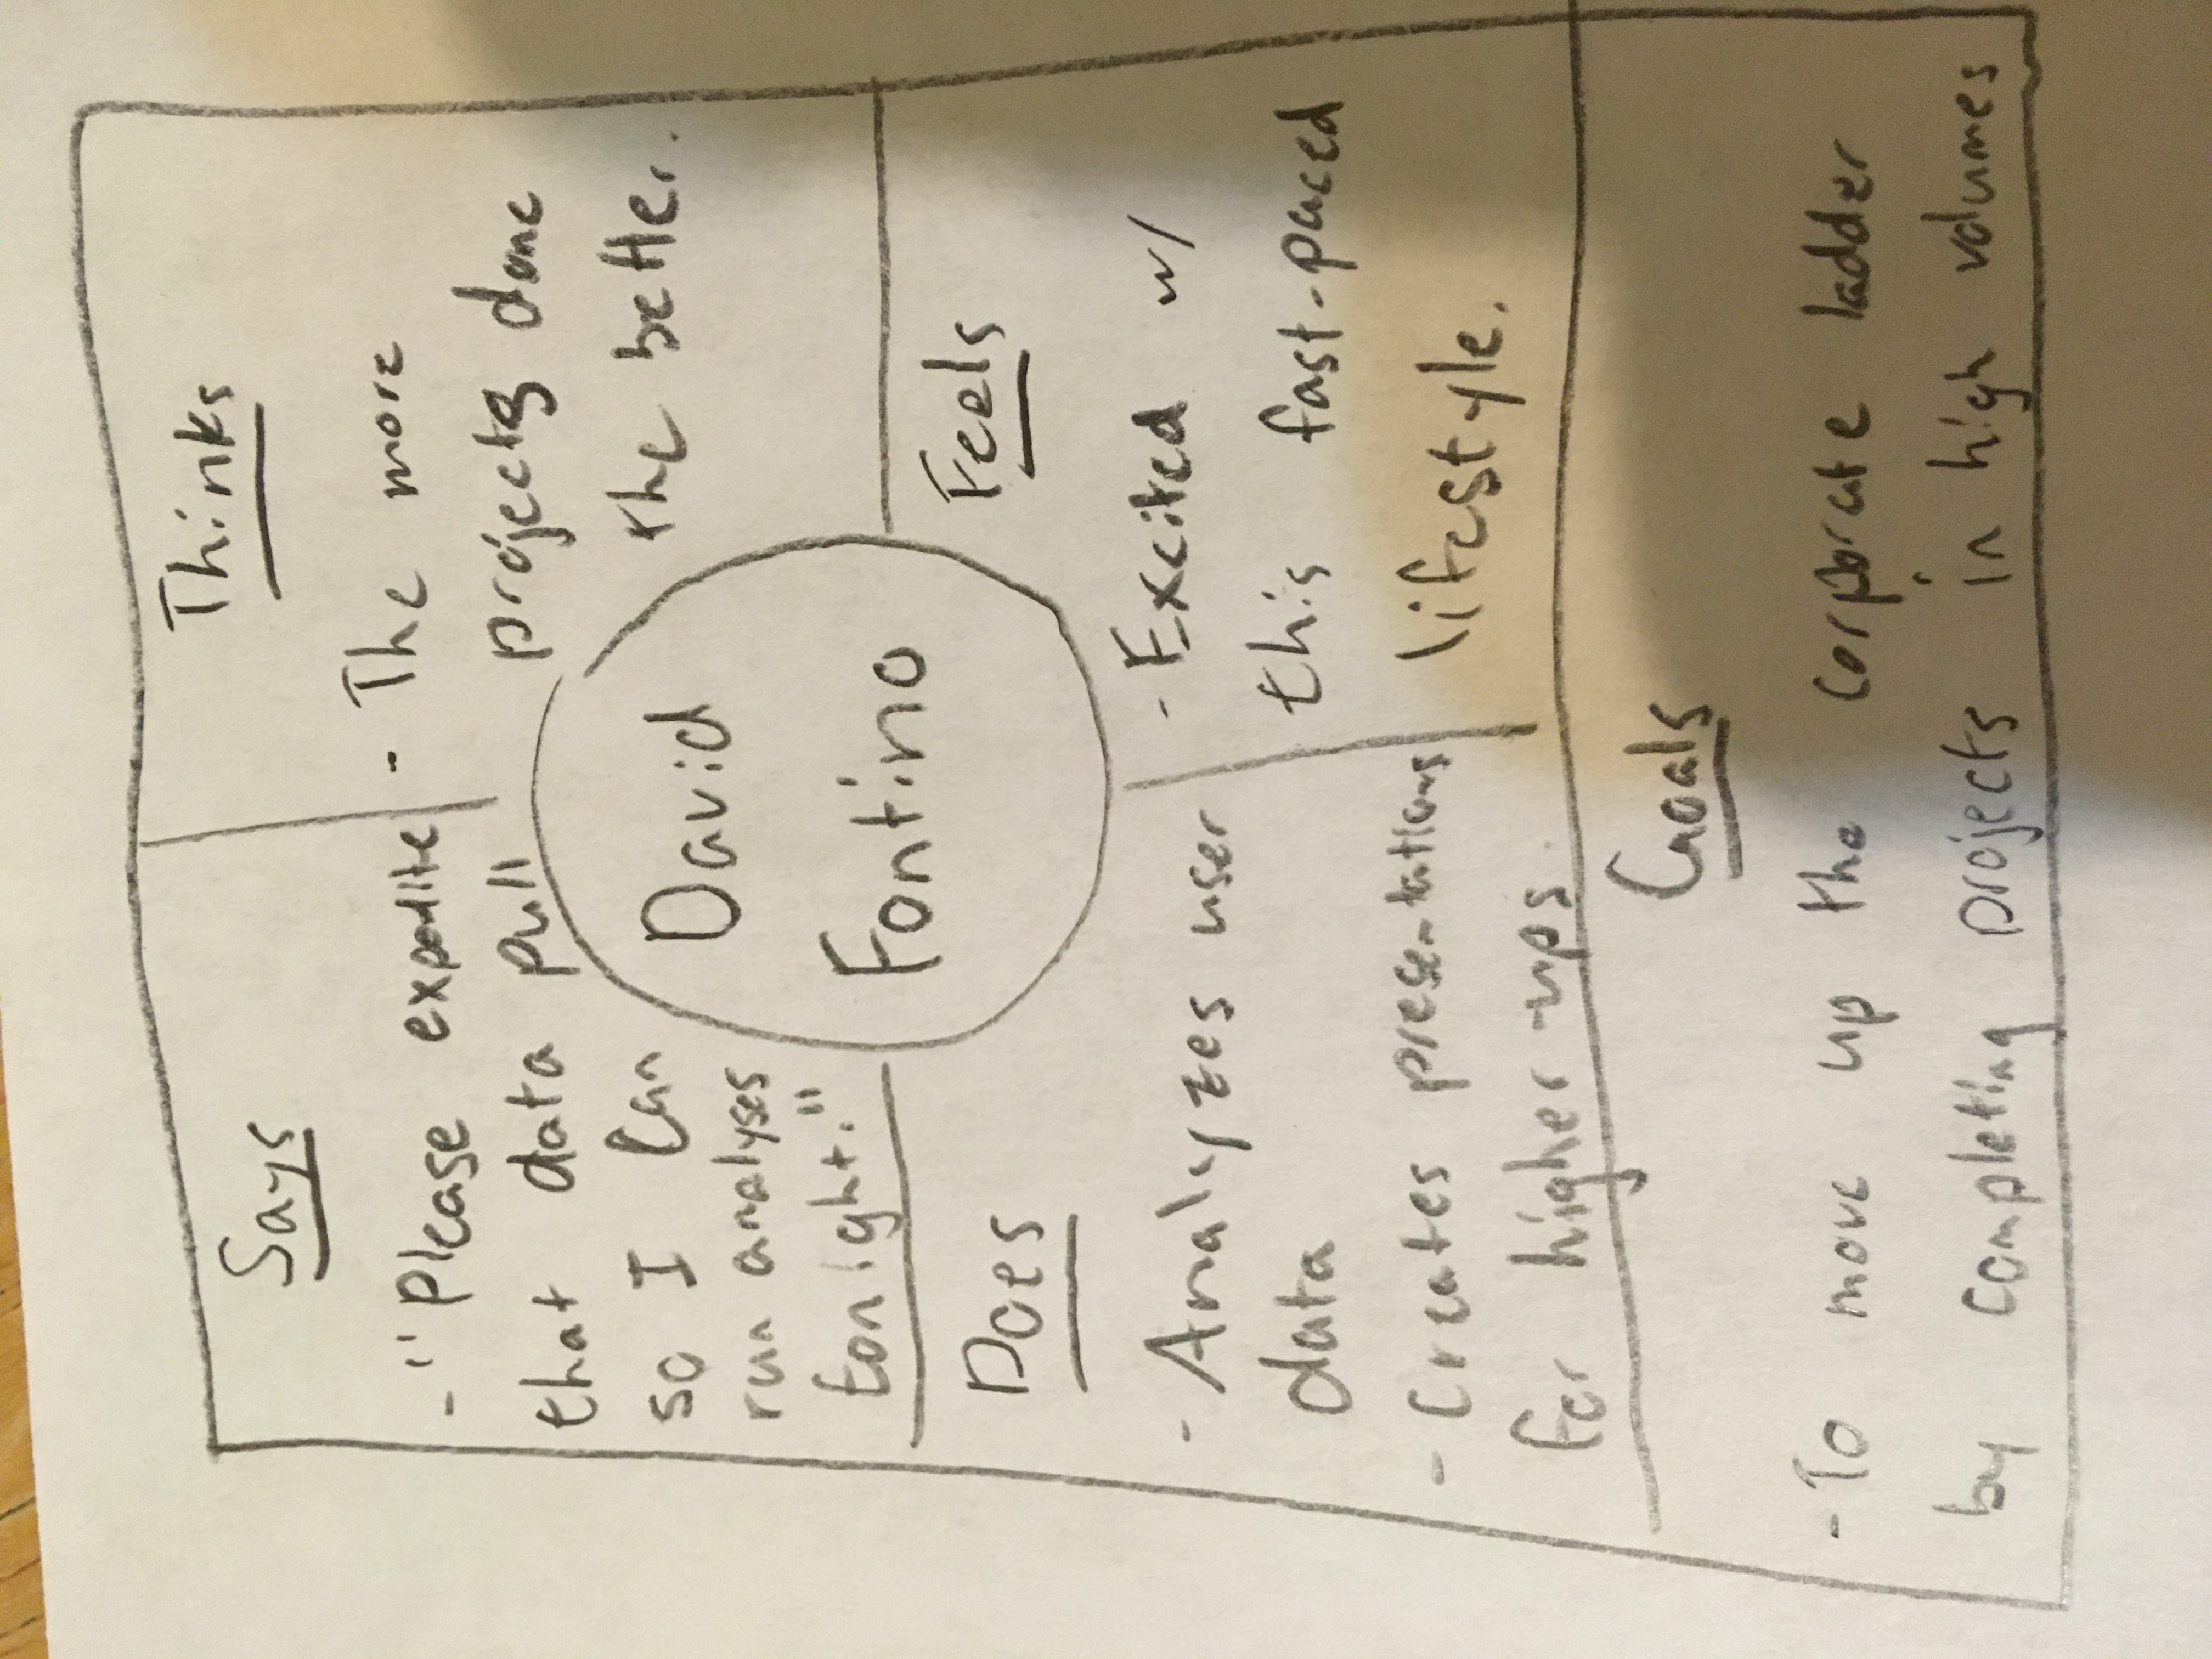 Says
- "Please expedite
that data pull
so I can
run analyses
tonight."
Thinks
- The more
projects done
the better.
David
Fontino
Does
- Analyzes user
data
- Creates presentations
for higher-ups.
Feels
- Excited w/
this fast-paced
lifestyle.
Goals
- To move up the corporate ladder
by completing projects in high volumes